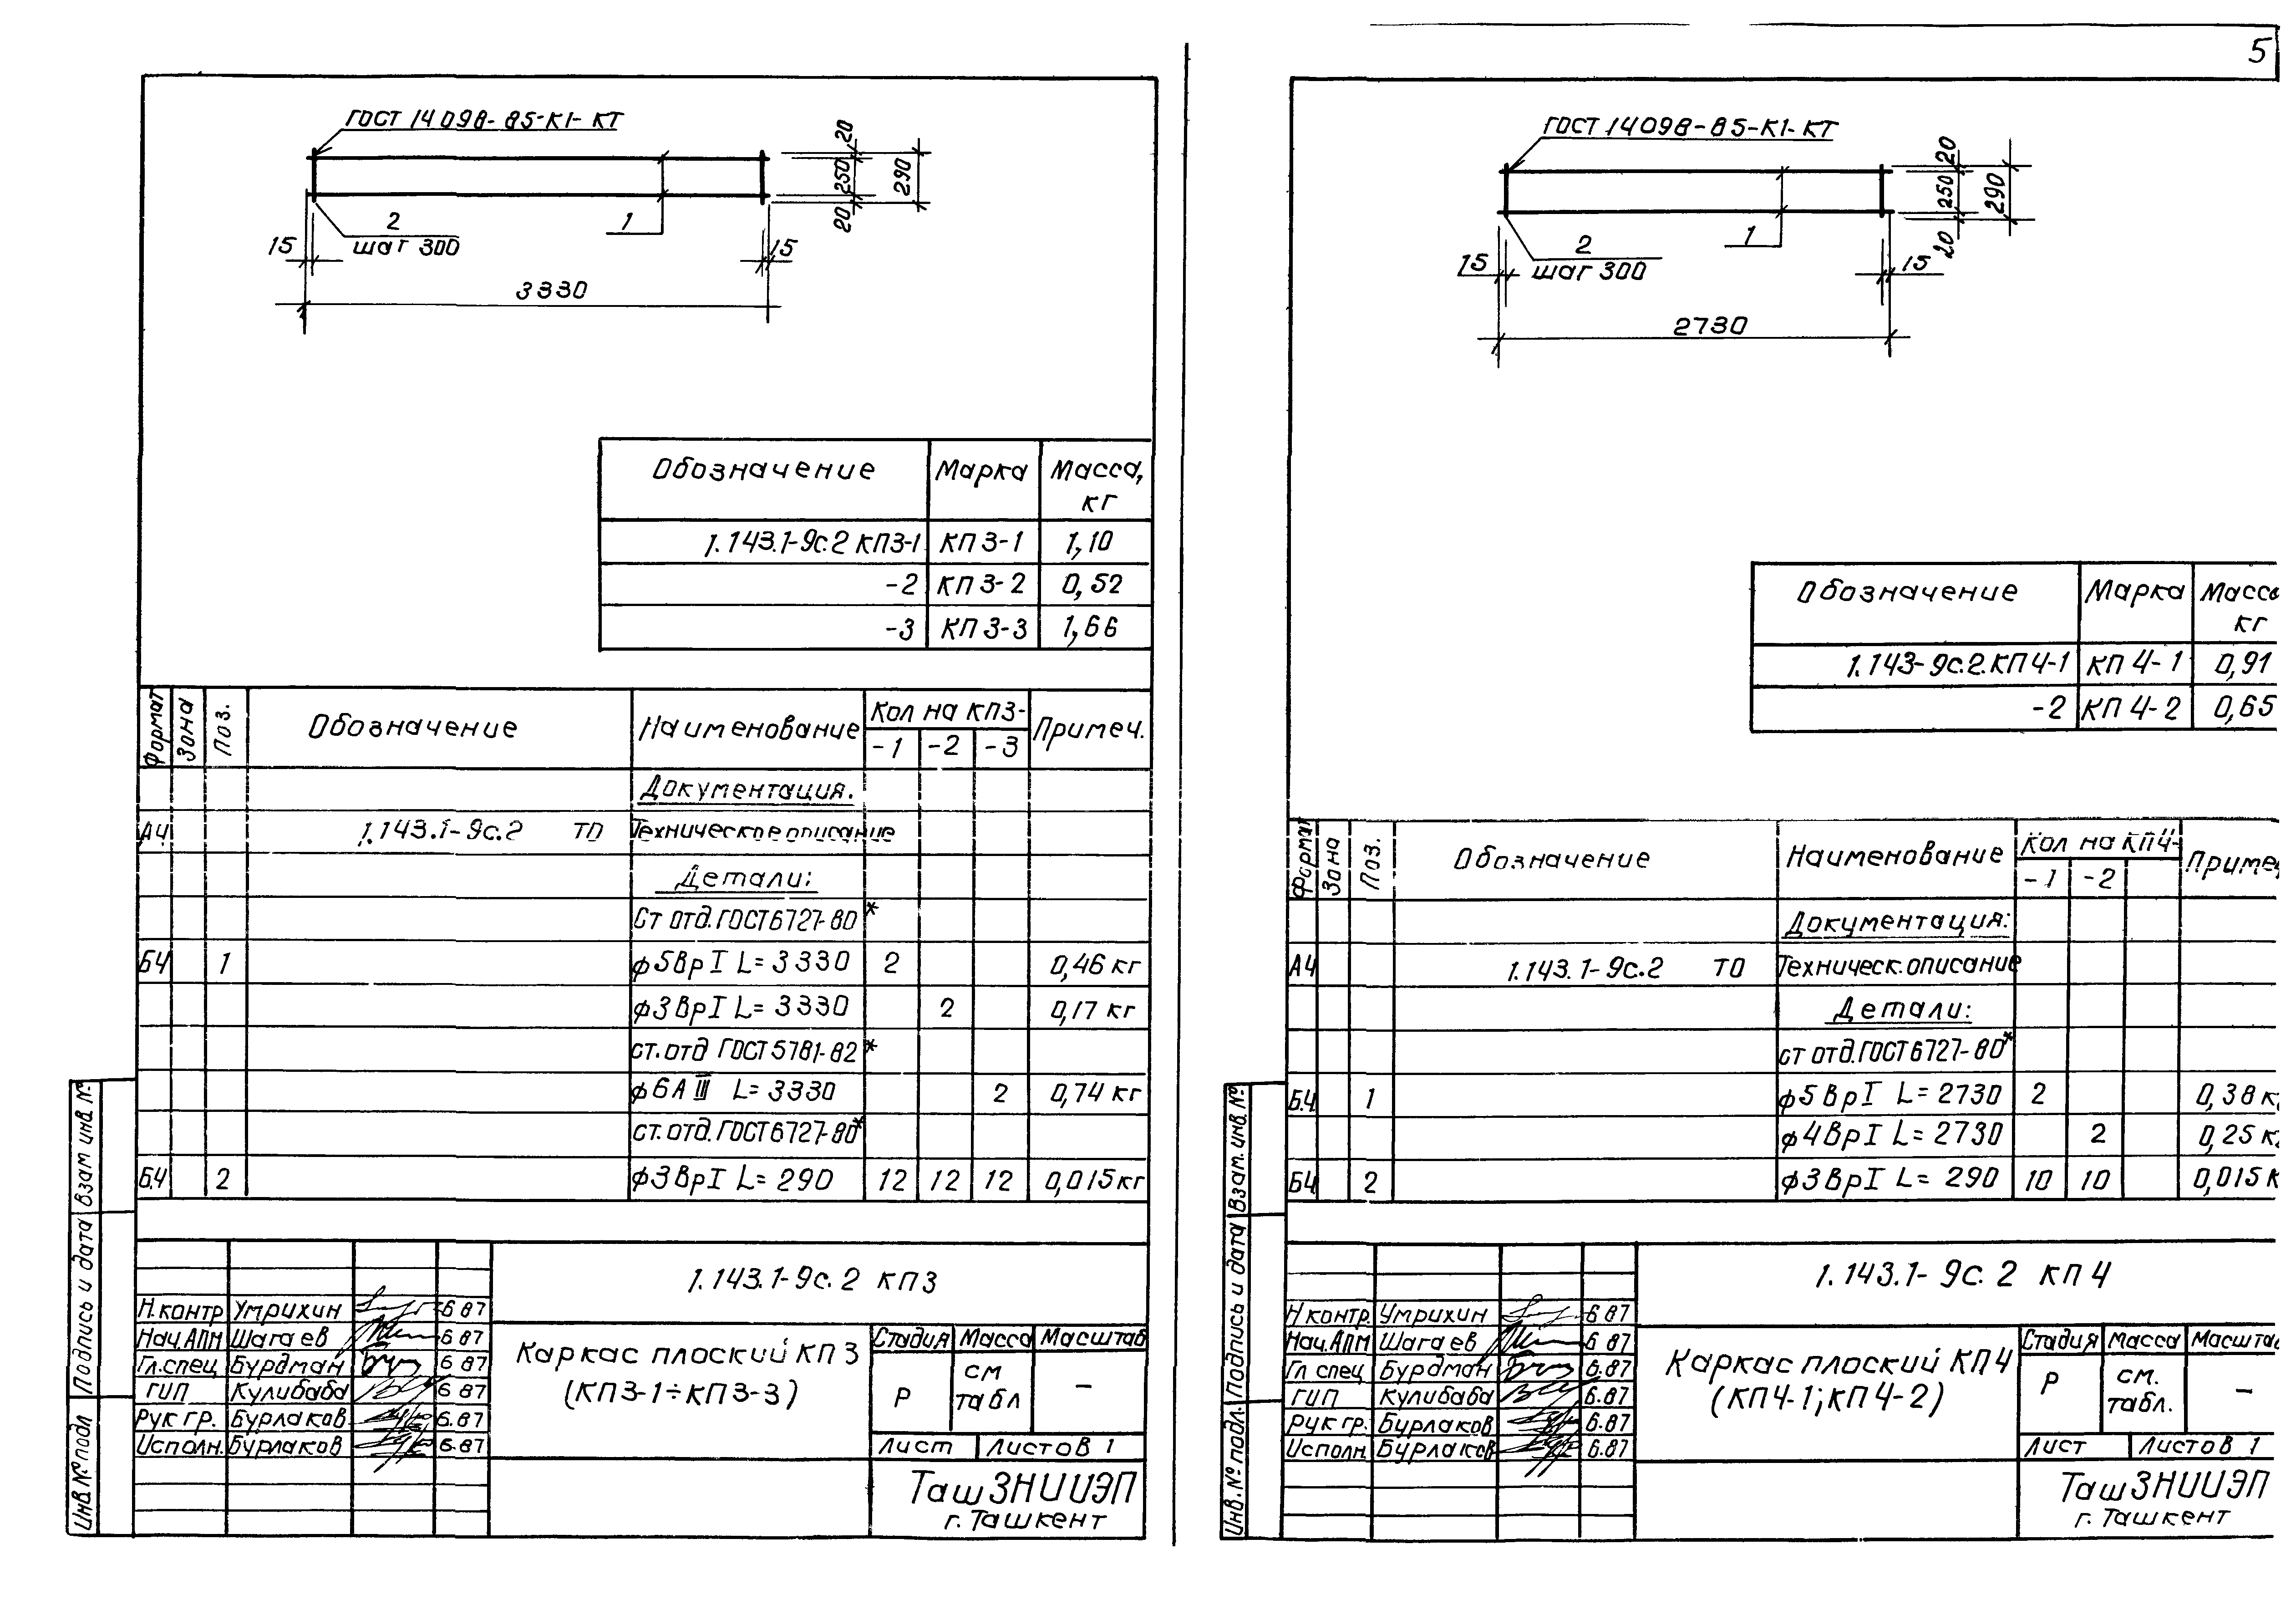 5
ГОСТ 14098-85-К1-КТ
20
250
290
20
2
шаг 300
1
15
15
3330
Обозначение Марка Масса, кг
1.143.1-9с.2 КП3-1 КП 3-1 1,10
-2 КП 3-2 0,52
-3 КП 3-3 1,66
Формат Зона Поз. Обозначение Наименование Кол на КП3- Примеч.
-1 -2 -3
Документация.
А4 1.143.1-9с.2 ТО Техническое описание
Детали:
Ст отд. ГОСТ 6727-80*
Б4 1 ф5ВрI L=3330 2 0,46 кг
ф3ВрI L=3330 2 0,17 кг
ст. отд ГОСТ 5781-82*
ф6АIII L=3330 2 0,74 кг
ст. отд. ГОСТ 6727-80*
Б.4 2 ф3ВрI L=290 12 12 12 0,015 кг
1.143.1-9с.2 КП3
Н.контр Умрихин 6 87
Нач.АПМ Шагаев 6 87
Гл.спец Бурдман 6 87
ГИП Кулибаба 6 87
Рук гр. Бурлаков 6.87
Исполн. Бурлаков 6.87
Каркас плоский КП 3
(КП3-1÷КП3-3)
Стадия Масса Масштаб
Р см табл –
Лист Листов 1
ТашЗНИИЭП
г. Ташкент
Взам инв №
Подпись и дата
Инв № подл
ГОСТ 14098-85-К1-КТ
20
250
290
20
2
шаг 300
1
15
15
2730
Обозначение Марка Масса кг
1.143-9с.2.КП4-1 КП 4-1 0,91
-2 КП 4-2 0,65
Формат Зона Поз. Обозначение Наименование Кол на КП4- Примеч
-1 -2
Документация:
А4 1.143.1-9с.2 ТО Техническ. описание
Детали:
ст отд. ГОСТ 6727-80*
Б.4 1 ф5ВрI L=2730 2 0,38 кг
ф4ВрI L=2730 2 0,25 кг
Б4 2 ф3ВрI L=290 10 10 0,015 к
1.143.1-9с.2 КП 4
Н контр. Умрихин 6 87
Нач.АПМ Шагаев 6 87
Гл спец Бурдман 6.87
ГИП Кулибаба 6.87
Рук гр. Бурлаков 6.87
Исполн. Бурлаков 6.87
Каркас плоский КП4
(КП4-1; КП4-2)
Стадия Масса Масштаб
Р см. табл. –
Лист Листов 1
ТашЗНИИЭП
г. Ташкент
Взам. инв. №
Подпись и дата
Инв. № подл.